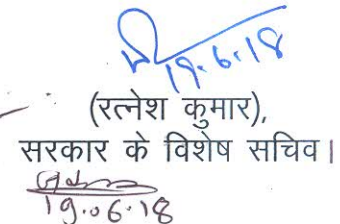 19.6.18
(रत्नेश कुमार),
सरकार के विशेष सचिव।
19.06.18